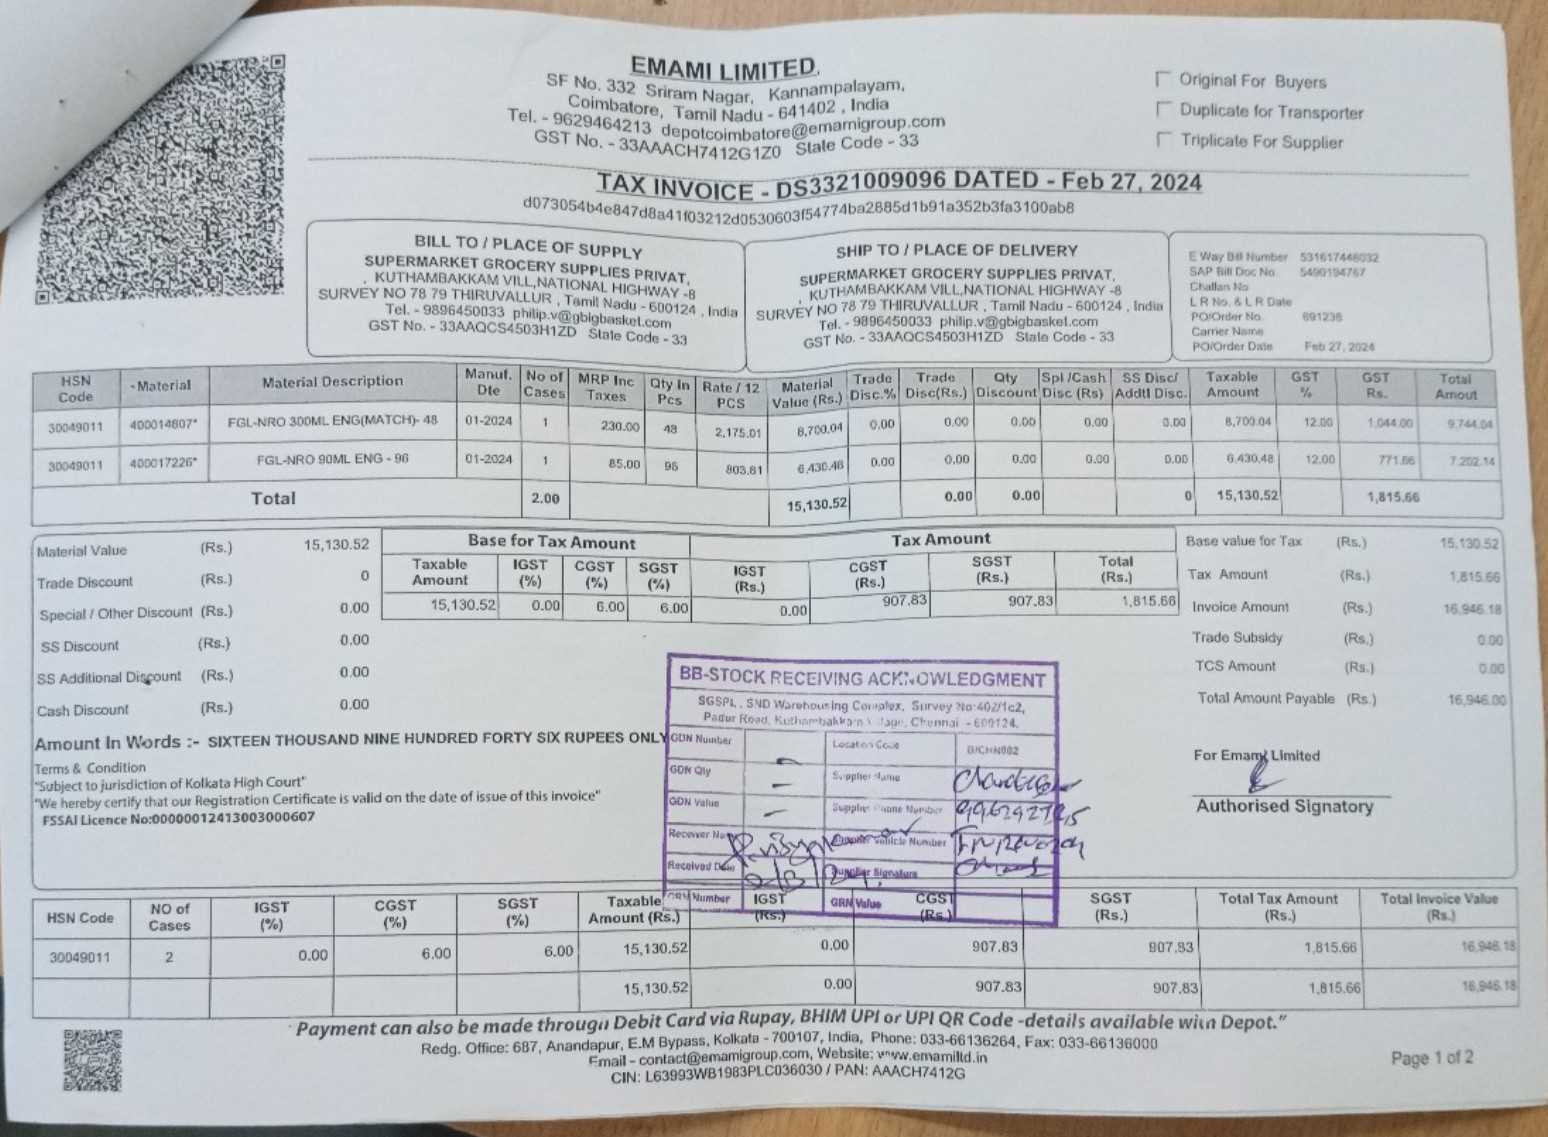 EMAMI LIMITED,
SF No. 332 Sriram Nagar, Kannampalayam,
Coimbatore, Tamil Nadu - 641402 , India
Tel. - 9629464213 depotcoimbatore@emamigroup.com
GST No. - 33AAACH7412G1Z0 State Code - 33
Original For Buyers
Duplicate for Transporter
Triplicate For Supplier
TAX INVOICE - DS3321009096 DATED - Feb 27, 2024
d073054b4e847d8a41f03212d0530603f54774ba2885d1b91a352b3fa3100ab8
BILL TO / PLACE OF SUPPLY
SUPERMARKET GROCERY SUPPLIES PRIVAT,
, KUTHAMBAKKAM VILL,NATIONAL HIGHWAY -8
SURVEY NO 78 79 THIRUVALLUR , Tamil Nadu - 600124 , India
Tel. - 9896450033 philip.v@gbigbasket.com
GST No. - 33AAQCS4503H1ZD State Code - 33
SHIP TO / PLACE OF DELIVERY
SUPERMARKET GROCERY SUPPLIES PRIVAT,
, KUTHAMBAKKAM VILL,NATIONAL HIGHWAY -8
SURVEY NO 78 79 THIRUVALLUR , Tamil Nadu - 600124 , India
Tel. - 9896450033 philip.v@gbigbasket.com
GST No. - 33AAQCS4503H1ZD State Code - 33
E Way Bill Number 531617446032
SAP Bill Doc No. 5490194767
Challan No
L R No. & L R Date
PO/Order No. 691236
Carrier Name
PO/Order Date Feb 27, 2024
HSN Code Material Material Description Manuf. Dte No of Cases MRP Inc Taxes Qty In Pcs Rate / 12 PCS Material Value (Rs.) Trade Disc.% Trade Disc(Rs.) Qty Discount Spl /Cash Disc (Rs) SS Disc/ Addtl Disc. Taxable Amount GST % GST Rs. Total Amout
30049011 400014807* FGL-NRO 300ML ENG(MATCH)- 48 01-2024 1 230.00 48 2,175.01 8,700.04 0.00 0.00 0.00 0.00 0.00 8,700.04 12.00 1,044.00 9,744.04
30049011 400017226* FGL-NRO 90ML ENG - 96 01-2024 1 85.00 96 803.81 6,430.48 0.00 0.00 0.00 0.00 0.00 6,430.48 12.00 771.66 7,202.14
Total 2.00 15,130.52 0.00 0.00 0 15,130.52 1,815.66
Material Value (Rs.) 15,130.52
Trade Discount (Rs.) 0
Special / Other Discount (Rs.) 0.00
SS Discount (Rs.) 0.00
SS Additional Discount (Rs.) 0.00
Cash Discount (Rs.) 0.00
Base for Tax Amount Tax Amount
Taxable Amount IGST (%) CGST (%) SGST (%) IGST (Rs.) CGST (Rs.) SGST (Rs.) Total (Rs.)
15,130.52 0.00 6.00 6.00 0.00 907.83 907.83 1,815.66
Base value for Tax (Rs.) 15,130.52
Tax Amount (Rs.) 1,815.66
Invoice Amount (Rs.) 16,946.18
Trade Subsidy (Rs.) 0.00
TCS Amount (Rs.) 0.00
Total Amount Payable (Rs.) 16,946.00
Amount In Words :- SIXTEEN THOUSAND NINE HUNDRED FORTY SIX RUPEES ONLY
Terms & Condition
"Subject to jurisdiction of Kolkata High Court"
"We hereby certify that our Registration Certificate is valid on the date of issue of this invoice"
FSSAI Licence No:00000012413003000607
BB-STOCK RECEIVING ACKNOWLEDGMENT
SGSPL , SND Warehousing Complex, Survey No:402/1c2,
Padur Road, Kuthambakkam Village, Chennai - 600124.
GDN Number Location Code
GDN Qty Supplier Name
GDN Value Supplier Phone Number
Receiver Supplier Vehicle Number
Received Date Supplier Signature
GRN Number GRN Value
For Emami Limited
Authorised Signatory
HSN Code NO of Cases IGST (%) CGST (%) SGST (%) Taxable Amount (Rs.) IGST (Rs.) CGST (Rs.) SGST (Rs.) Total Tax Amount (Rs.) Total Invoice Value (Rs.)
30049011 2 0.00 6.00 6.00 15,130.52 0.00 907.83 907.83 1,815.66 16,946.18
15,130.52 0.00 907.83 907.83 1,815.66 16,946.18
"Payment can also be made through Debit Card via Rupay, BHIM UPI or UPI QR Code -details available with Depot."
Redg. Office: 687, Anandapur, E.M Bypass, Kolkata - 700107, India, Phone: 033-66136264, Fax: 033-66136000
Email - contact@emamigroup.com, Website: www.emamiltd.in
CIN: L63993WB1983PLC036030 / PAN: AAACH7412G
Page 1 of 2